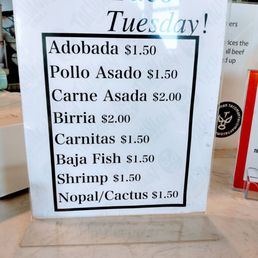 Tuesday!
Adobada $1.50
Pollo Asado $1.50
Carne Asada $2.00
Birria $2.00
Carnitas $1.50
Baja Fish $1.50
Shrimp $1.50
Nopal/Cactus $1.50
ers
ices the
all beef
d up